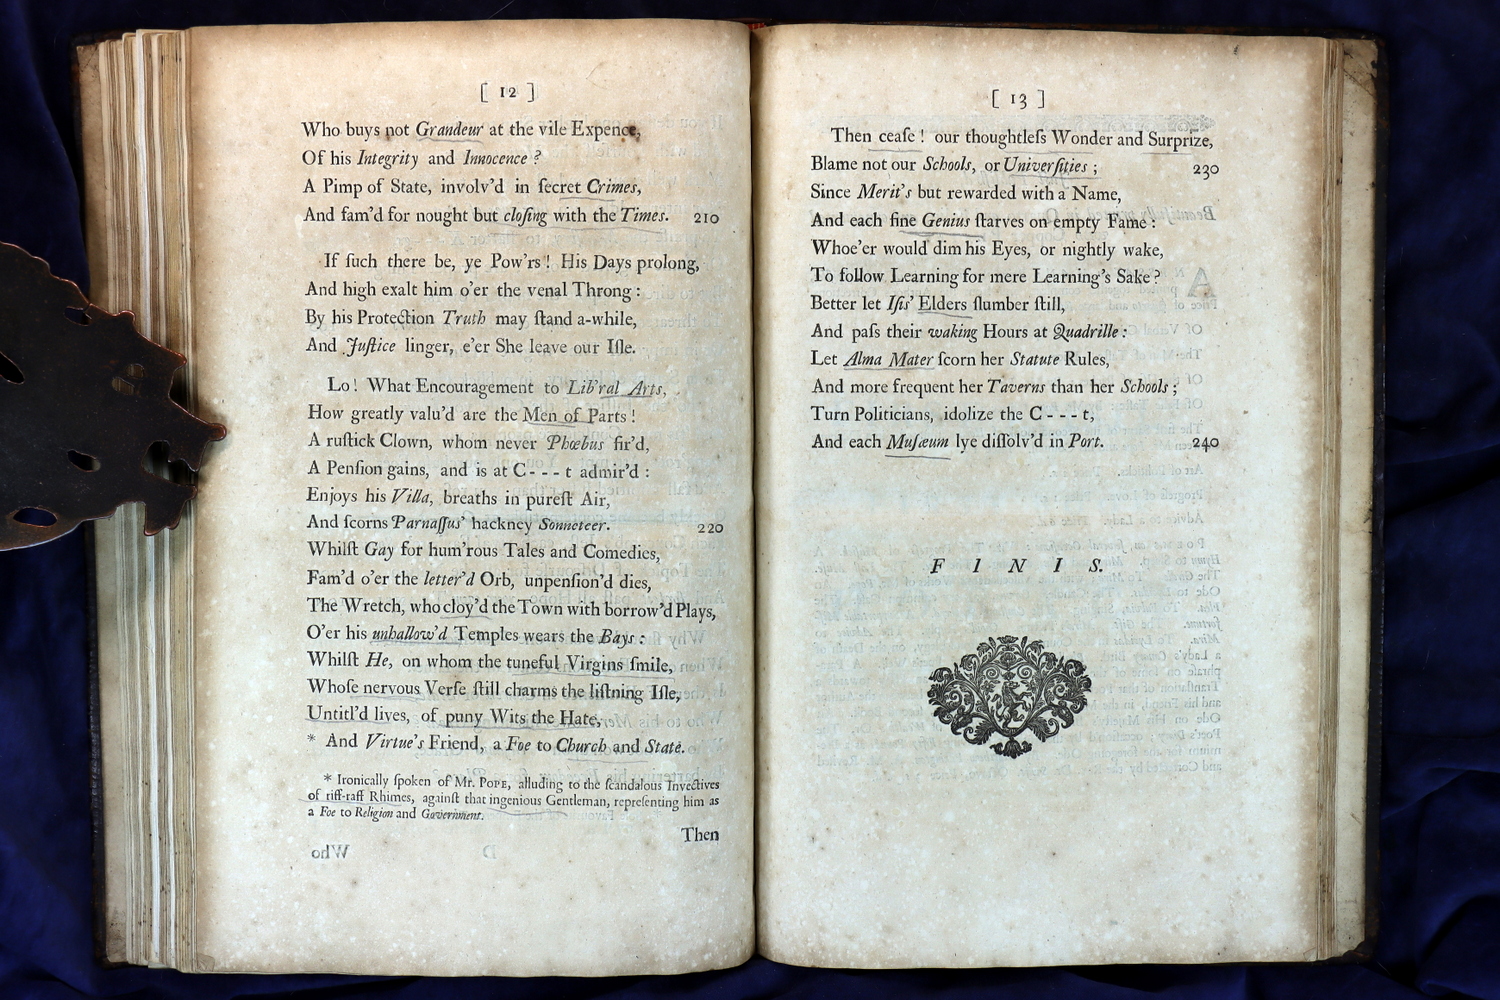 [ 12 ]
Who buys not Grandeur at the vile Expence,
Of his Integrity and Innocence ?
A Pimp of State, involv'd in ſecret Crimes,
And fam'd for nought but cloſing with the Times. 210
If ſuch there be, ye Pow'rs ! His Days prolong,
And high exalt him o'er the venal Throng :
By his Protection Truth may ſtand a-while,
And Juſtice linger, e'er She leave our Iſle.
Lo ! What Encouragement to Lib'ral Arts,
How greatly valu'd are the Men of Parts !
A ruſtick Clown, whom never Phœbus fir'd,
A Penſion gains, and is at C - - - t admir'd :
Enjoys his Villa, breaths in pureſt Air,
And ſcorns Parnaſſus' hackney Sonneteer. 220
Whilſt Gay for hum'rous Tales and Comedies,
Fam'd o'er the letter'd Orb, unpenſion'd dies,
The Wretch, who cloy'd the Town with borrow'd Plays,
O'er his unhallow'd Temples wears the Bays :
Whilſt He, on whom the tuneful Virgins ſmile,
Whoſe nervous Verſe ſtill charms the liſtning Iſle,
Untitl'd lives, of puny Wits the Hate,
* And Virtue's Friend, a Foe to Church and State.
* Ironically ſpoken of Mr. POPE, alluding to the ſcandalous Invectives
of riff-raff Rhimes, againſt that ingenious Gentleman, repreſenting him as
a Foe to Religion and Government.
Then
[ 13 ]
Then ceaſe ! our thoughtleſs Wonder and Surprize,
Blame not our Schools, or Univerſities ; 230
Since Merit's but rewarded with a Name,
And each fine Genius ſtarves on empty Fame :
Whoe'er would dim his Eyes, or nightly wake,
To follow Learning for mere Learning's Sake ?
Better let Iſis' Elders ſlumber ſtill,
And paſs their waking Hours at Quadrille :
Let Alma Mater ſcorn her Statute Rules,
And more frequent her Taverns than her Schools ;
Turn Politicians, idolize the C - - - t,
And each Muſæum lye diſſolv'd in Port. 240
F I N I S.